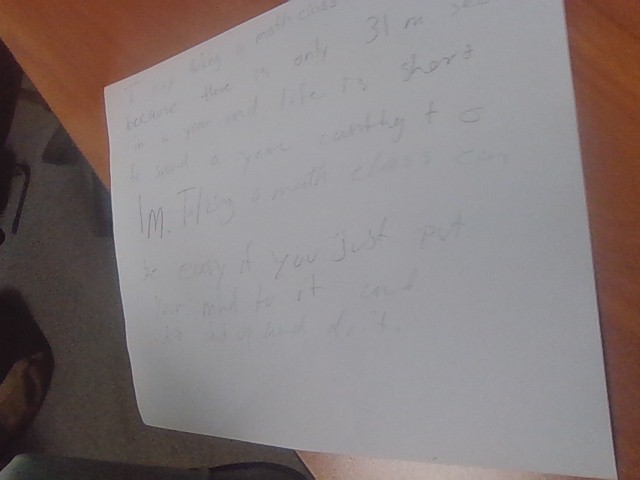 I taking a math class
because there is only 31 m sec
in a year and life is short
to a year counting to
1M. Taking a math class can
be easy if you just put
your mind to it and
it.